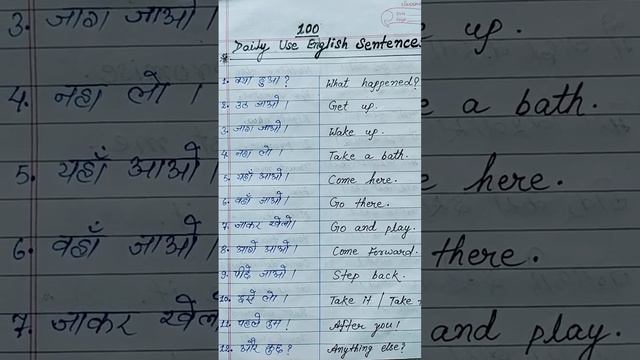 100
Daily Use English Sentence
1. क्या हुआ? What happened?
2. उठ जाओ। Get up.
3. जाग जाओ। Wake up.
4. नहा लो। Take a bath.
5. यहाँ आओ। Come here.
6. वहाँ जाओ। Go there.
7. जाकर खेलो। Go and play.
8. आगे आओ। Come Forward.
9. पीछे जाओ। Step back.
10. इसे लो। Take It / Take
11. पहले तुम! After you!
12. और कुछ? Anything else?
3. जाग जाओ। up.
4. नहा लो। a bath.
5. यहाँ आओ। here.
6. वहाँ जाओ। there.
7. जाकर खेलो and play.